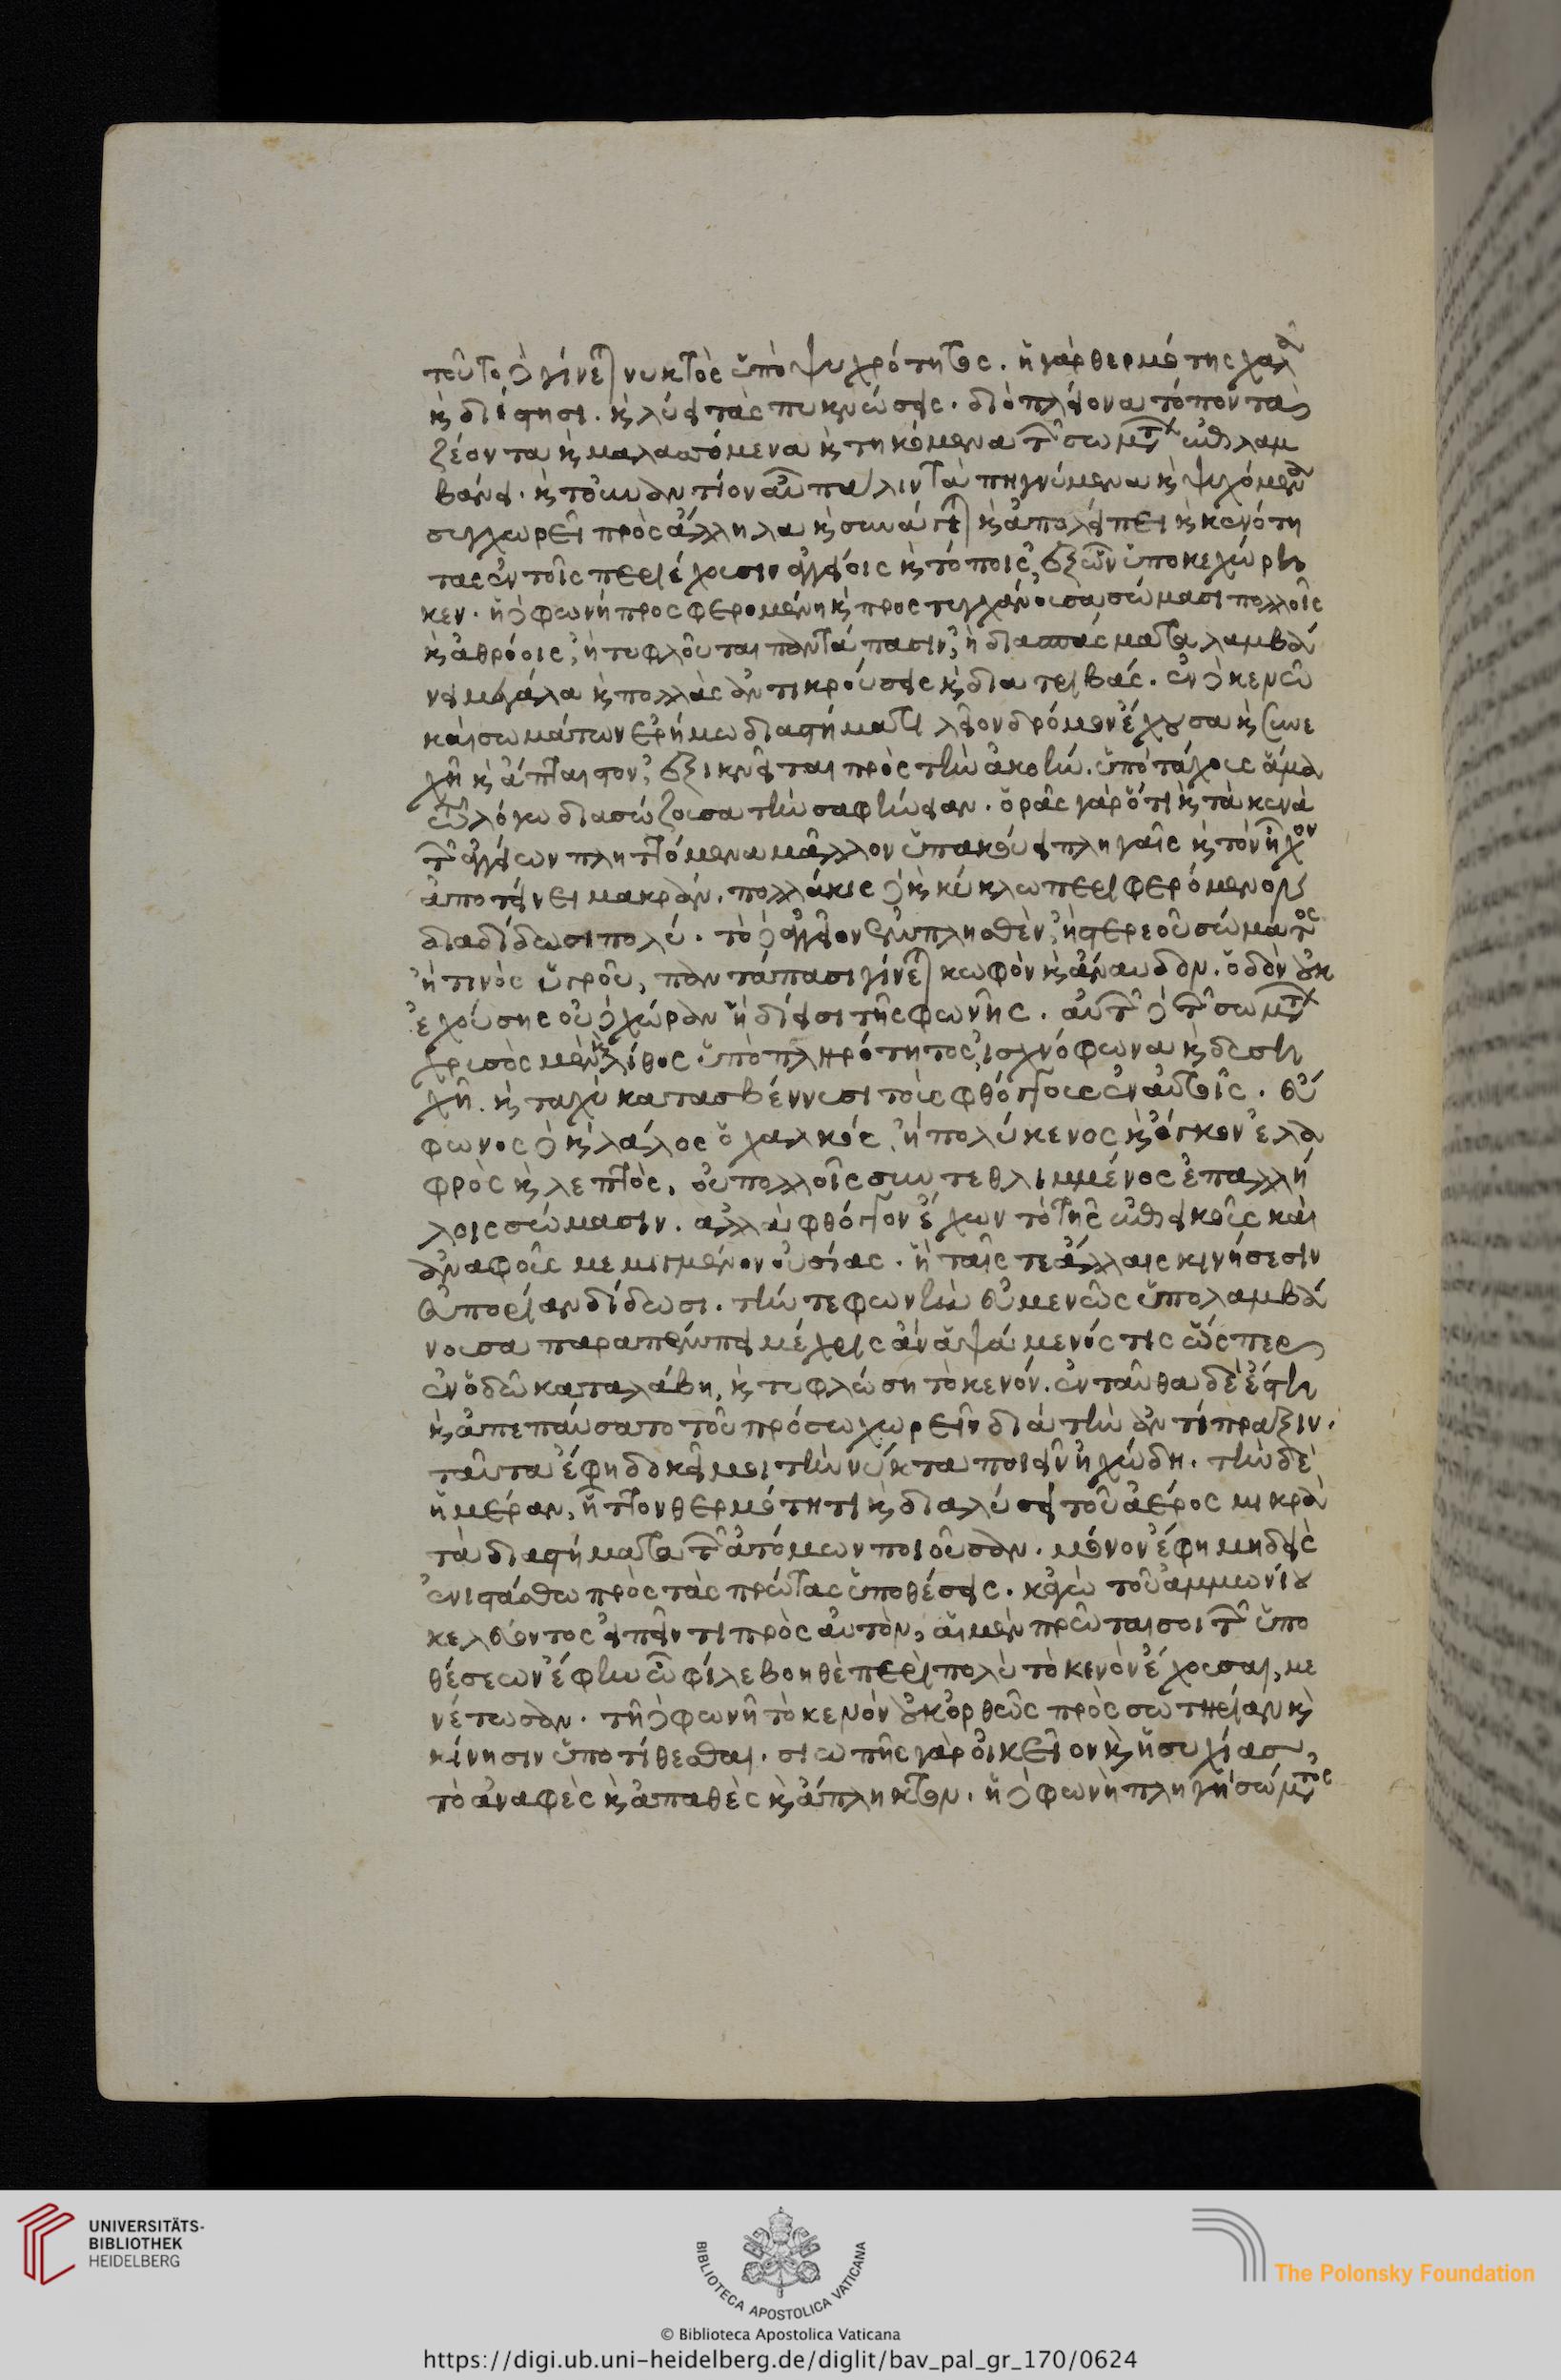 τοῦτο δὲ γίνεται νυκτὸς ὑπὸ ψυχρότητος. ἡ γὰρ θερμότης χαλᾷ
καὶ διΐστησι. καὶ λύει τὰς πυκνώσεις. διὸ πλείονα τόπον τὰ
ζέοντα καὶ μαλασσόμενα καὶ τηκόμενα τῶν σωμάτων ἐπιλαμ
βάνει. καὶ τοὐναντίον αὖ πάλιν τὰ πηγνύμενα καὶ ψυχόμενα
συγχωρεῖ πρὸς ἄλληλα καὶ συνάγεται καὶ ἀπολείπει καὶ κενότη
τας ἐν τοῖς περιέχουσιν ἀγγείοις καὶ τόποις, ἐξ ὧν ὑποκεχώρη
κεν. ἡ δὲ φωνὴ προσφερομένη καὶ προστυγχάνουσα σώμασι πολλοῖς
καὶ ἀθρόοις, ἢ τυφλοῦται παντάπασιν, ἢ διασπάσματα λαμβά
νει μεγάλα καὶ πολλὰς ἀντικρούσεις καὶ διατριβάς. ἐν δὲ κενῷ
καὶ σωμάτων ἐρήμῳ διαστήματι λεῖον δρόμον ἔχουσα καὶ συνε
χῆ καὶ ἄπταιστον, ἐξικνεῖται πρὸς τὴν ἀκοήν. ὑπὸ τάχους ἅμα
τῷ λόγῳ διασώζουσα τὴν σαφήνειαν. ὁρᾷς γὰρ ὅτι καὶ τὰ κενὰ
τῶν ἀγγείων πληττόμενα μᾶλλον ὑπακούει πληγαῖς καὶ τὸν ἦχον
ἀποτείνει μακράν. πολλάκις δὲ καὶ κύκλῳ περιφερόμενος
διαδίδωσι πολύ. τὸ δὲ ἀγγεῖον ἐμπλησθὲν, ἢ στερεοῦ σώματος
ἤ τινος ὑγροῦ, παντάπασι γίνεται κωφὸν καὶ ἄναυδον. ὁδὸν οὐκ
ἐχούσης οὐδὲ χώραν ᾗ δίεισι τῆς φωνῆς. αὐτῶν δὲ τῶν σωμάτων
χρυσὸς μὲν καὶ λίθος ὑπὸ πληρότητος, ἰσχνόφωνα καὶ δυση
χῆ. καὶ ταχὺ κατασβέννυσι τοὺς φθόγγους ἐν αὐτοῖς. εὔ
φωνος δὲ καὶ λάλος ὁ χαλκός, ᾗ πολύκενος καὶ ὄγκον ἐλα
φρὸς καὶ λεπτὸς, οὐ πολλοῖς συντεθλιμμένος ἐπαλλή
λοις σώμασιν. ἀλλὰ φθόγγον ἔχων τὸ τῆς ἐπιεικοῦς καὶ
ἀναφοῦς μεμιγμένον οὐσίας. ἣ ταῖς τε ἄλλαις κινήσεσιν
εὐπορίαν δίδωσι. τήν τε φωνὴν εὐμενῶς ὑπολαμβά
νουσα παραπέμπει μέχρις ἂν ἁψάμενός τις ὥσπερ
ἐν ὁδῷ καταλάβῃ, καὶ τυφλώσῃ τὸ κενόν. ἐνταῦθα δὲ ἔστη
καὶ ἀπεπαύσατο τοῦ πρόσω χωρεῖν διὰ τὴν ἀντίπραξιν.
ταῦτα ἔφη δοκεῖ μοι τὴν νύκτα ποιεῖν ἠχώδη. τὴν δὲ
ἡμέραν, ἧττον θερμότητι καὶ διαλύσει τοῦ ἀέρος μικρὰ
τὰ διαστήματα τῶν ἀτόμων ποιοῦσαν. μόνον ἔφη μηδεὶς
ἐνιστάσθω πρὸς τὰς πρώτας ὑποθέσεις. κἀγὼ τοῦ ἀμμωνίου
κελεύοντος εἰπεῖν τι πρὸς αὐτὸν, αἱ μὲν πρῶταί σοι τῶν ὑπο
θέσεων ἔφην ὦ φίλε βόηθε περὶ πολὺ τὸ κενὸν ἔχουσαι, με
νέτωσαν. τῇ δὲ φωνῇ τὸ κενὸν οὐκ ὀρθῶς πρὸς σωτηρίαν καὶ
κίνησιν ὑποτίθεσθαι. σιωπῆς γὰρ οἰκεῖον καὶ ἡσυχίας,
τὸ ἀναφὲς καὶ ἀπαθὲς καὶ ἄπληκτον. ἡ δὲ φωνὴ πληγὴ σώματος
UNIVERSITÄTS-
BIBLIOTHEK
HEIDELBERG
BIBLIOTECA APOSTOLICA VATICANA
The Polonsky Foundation
© Biblioteca Apostolica Vaticana
https://digi.ub.uni-heidelberg.de/diglit/bav_pal_gr_170/0624